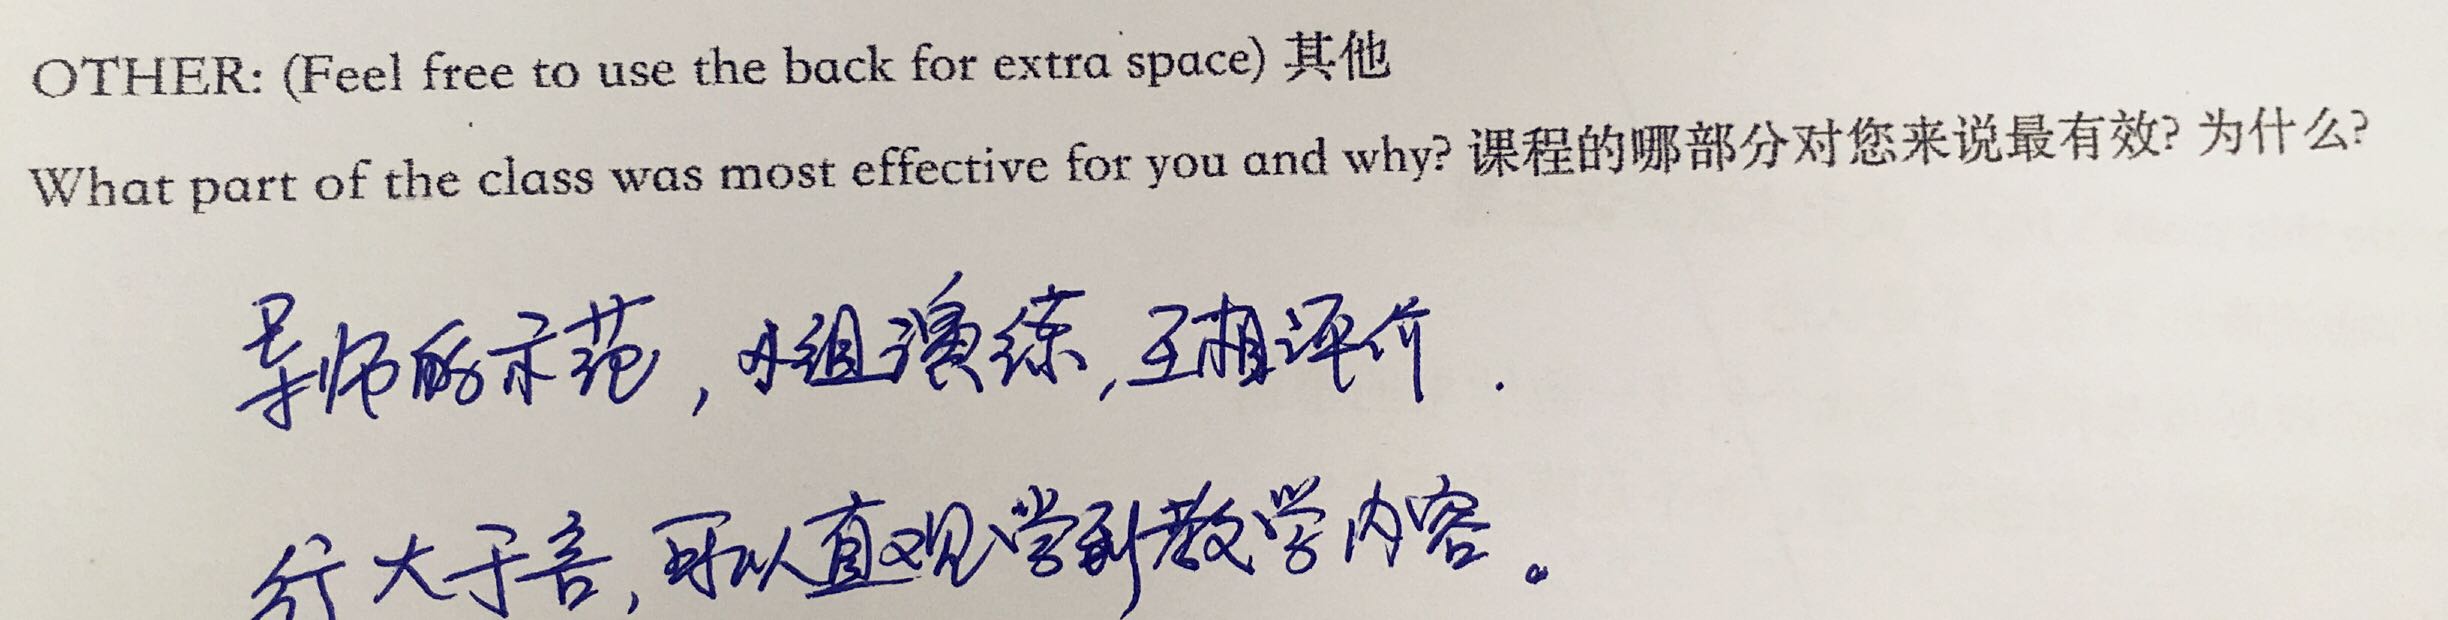 OTHER: (Feel free to use the back for extra space) 其他
What part of the class was most effective for you and why? 课程的哪部分对您来说最有效? 为什么?
导师的示范,小组演练,互相评价.
行大于言,可以直观学到教学内容。